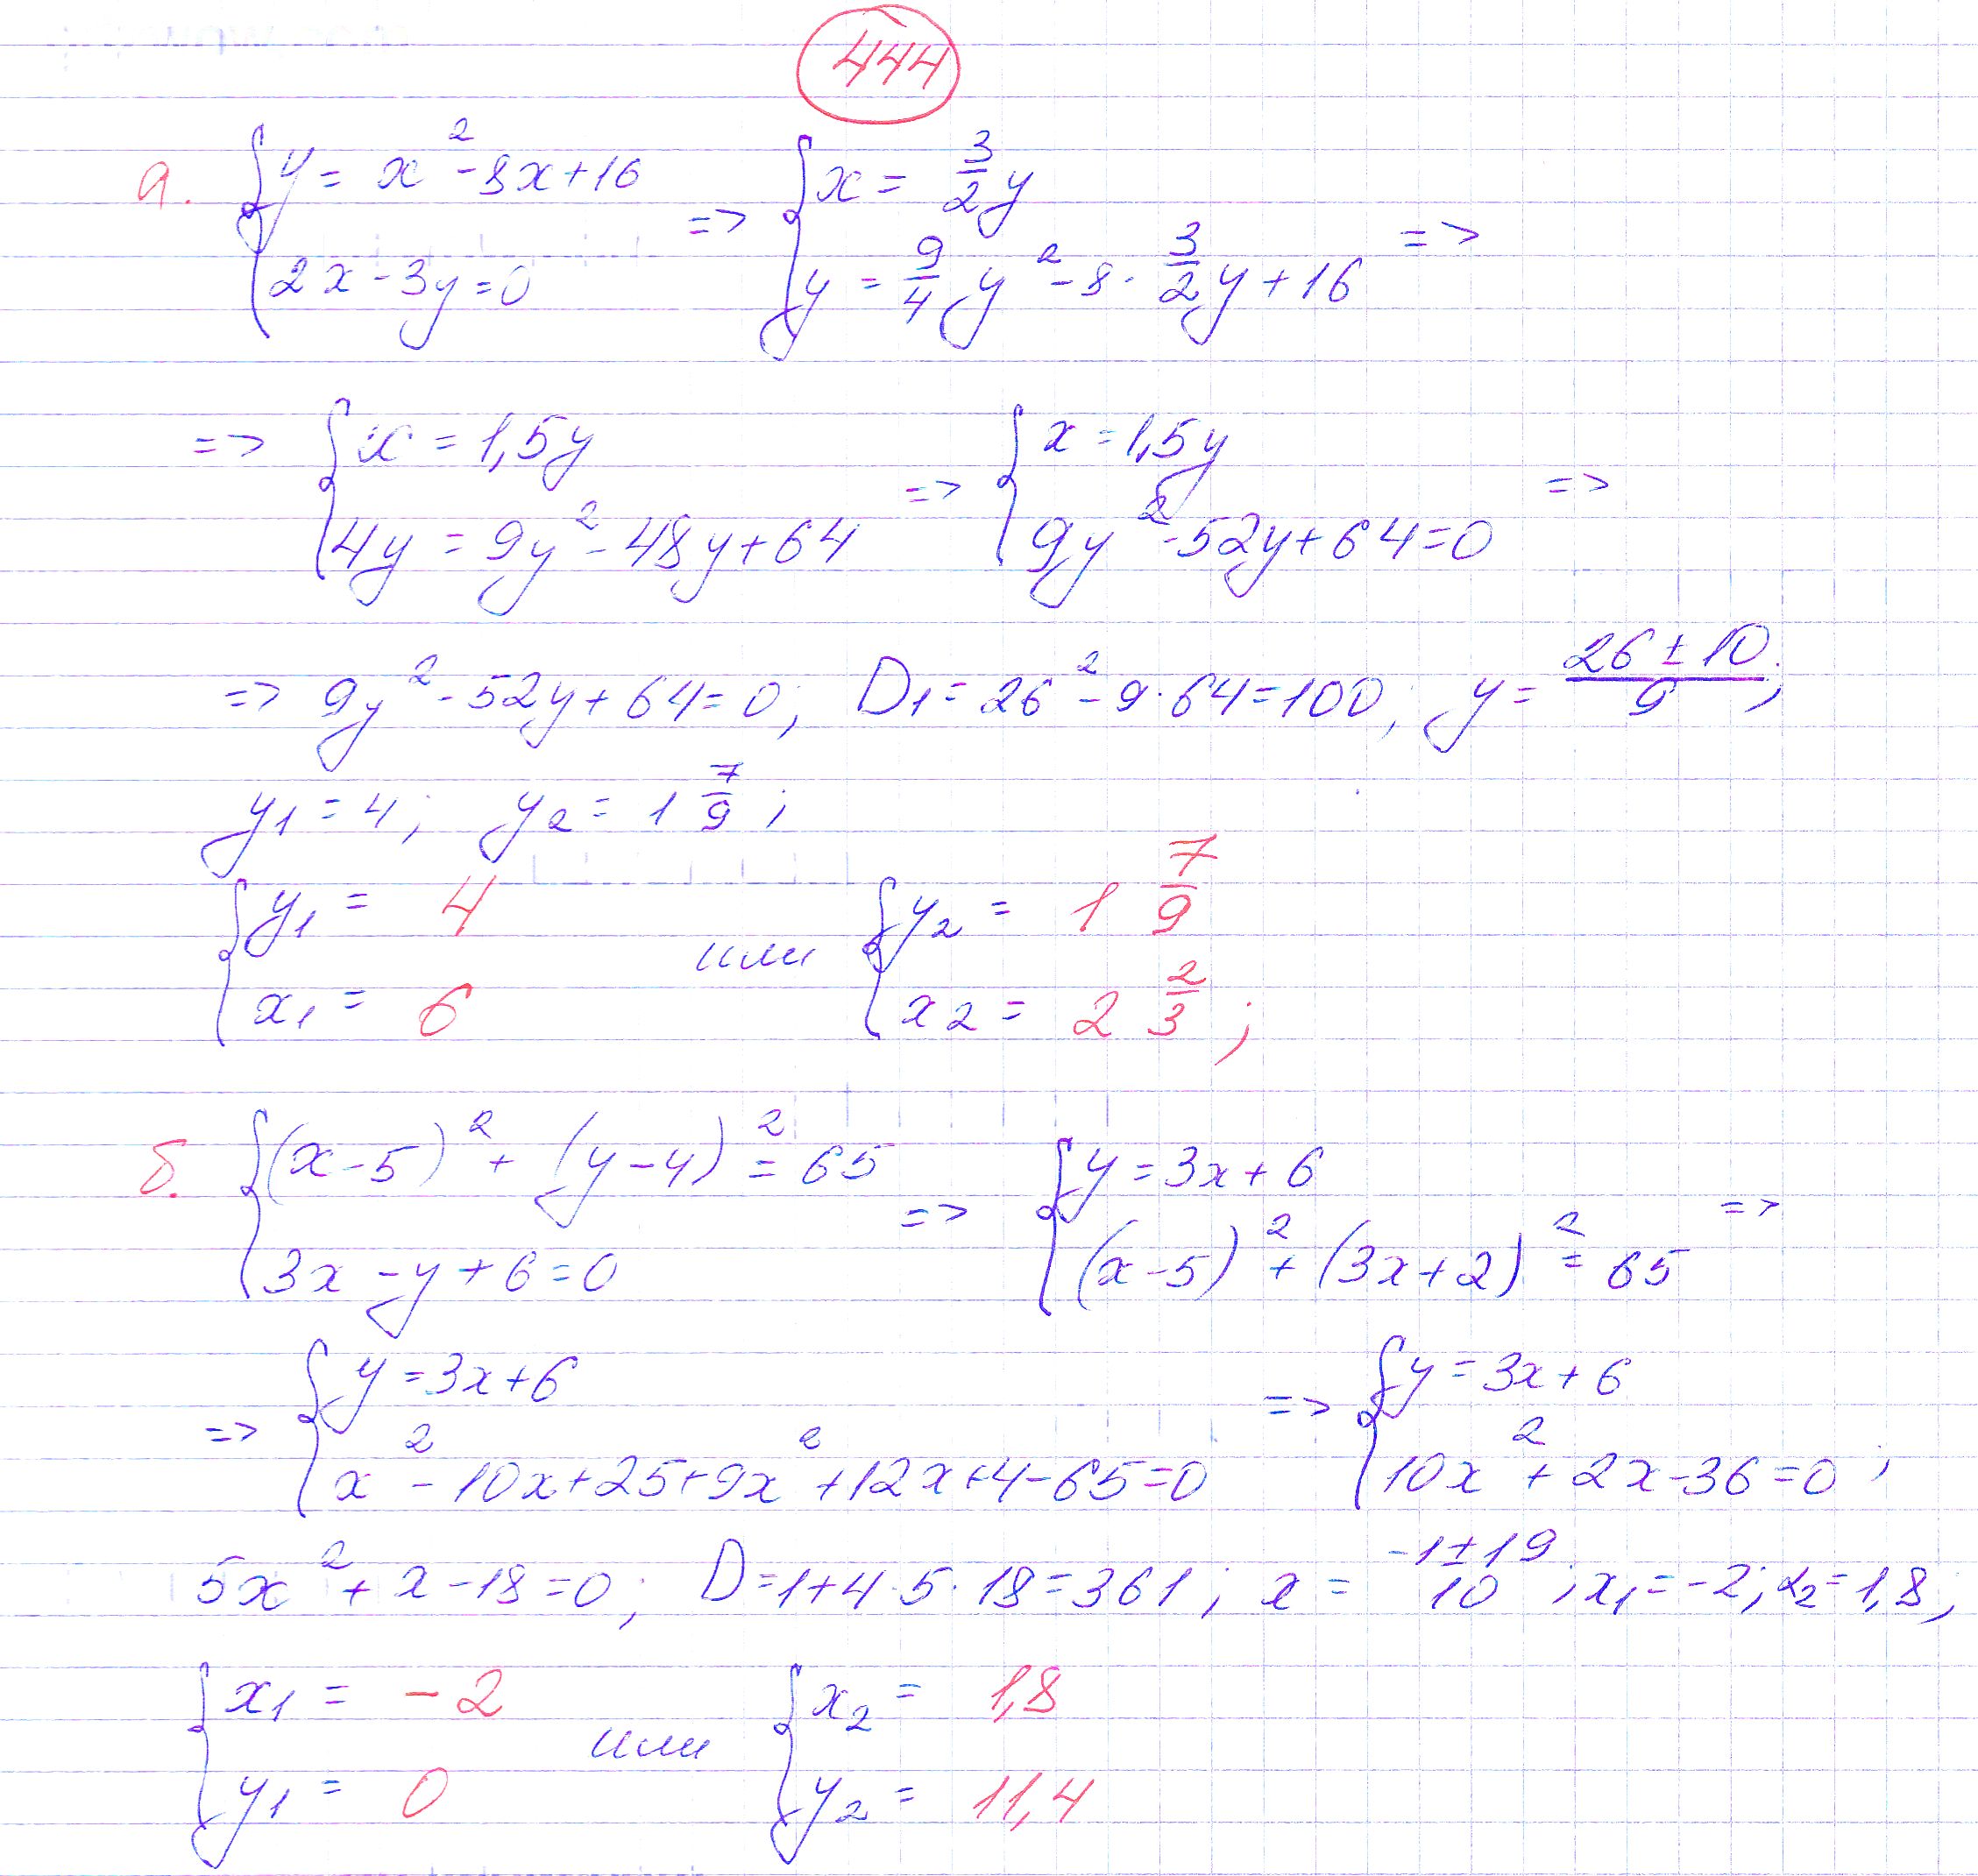 444
а. { y = x² - 8x + 16 ; 2x - 3y = 0 => { x = 3/2 y ; y = 9/4 y² - 8 · 3/2 y + 16 =>
=> { x = 1,5y ; 4y = 9y² - 48y + 64 => { x = 1,5y ; 9y² - 52y + 64 = 0 =>
=> 9y² - 52y + 64 = 0; D₁ = 26² - 9 · 64 = 100; y = (26 ± 10)/9;
y₁ = 4; y₂ = 1 7/9;
{ y₁ = 4 ; x₁ = 6 или { y₂ = 1 7/9 ; x₂ = 2 2/3 ;
б. { (x - 5)² + (y - 4)² = 65 ; 3x - y + 6 = 0 => { y = 3x + 6 ; (x - 5)² + (3x + 2)² = 65 =>
=> { y = 3x + 6 ; x² - 10x + 25 + 9x² + 12x + 4 - 65 = 0 => { y = 3x + 6 ; 10x² + 2x - 36 = 0 ;
5x² + x - 18 = 0; D = 1 + 4 · 5 · 18 = 361; x = (-1 ± 19)/10; x₁ = -2; x₂ = 1,8;
{ x₁ = -2 ; y₁ = 0 или { x₂ = 1,8 ; y₂ = 11,4